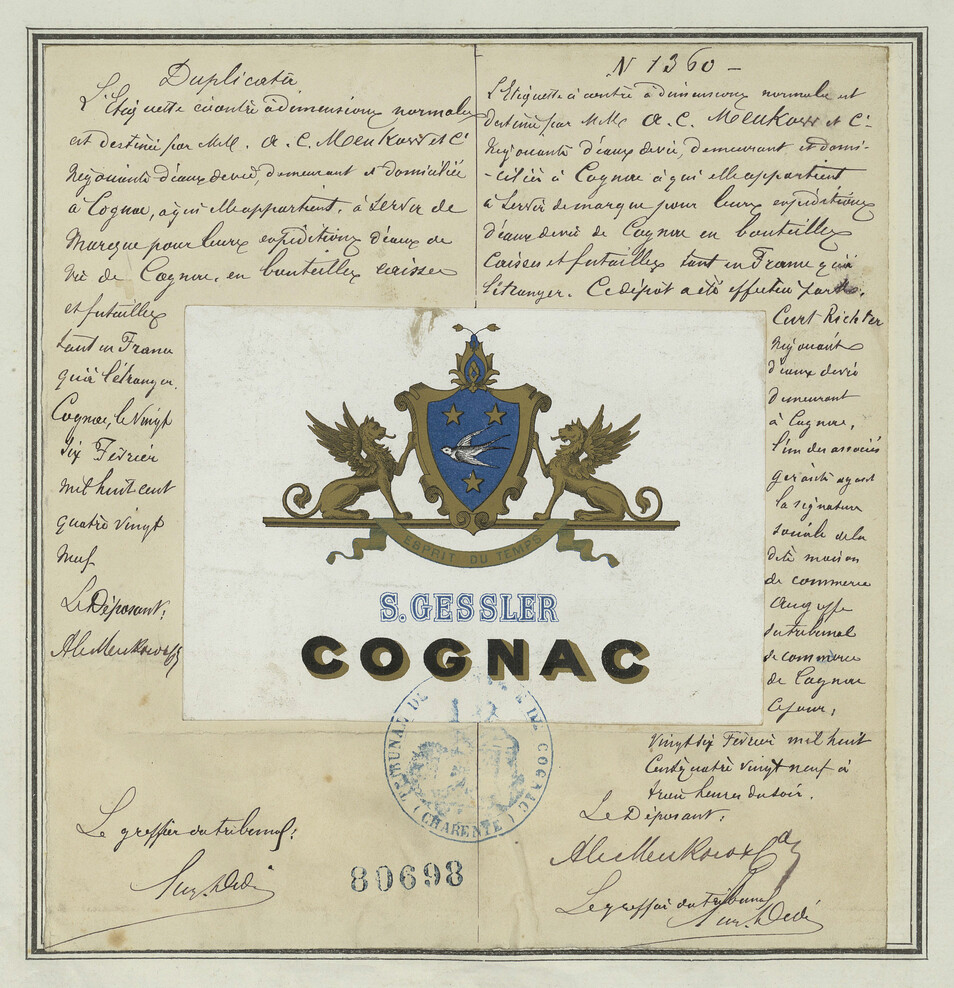 Duplicata
L'Etiquette ci contre à dimensions normales
est destinée par M.M. A. C. Meukow et Cie
Négociants d'eaux de vie, demeurant et domiciliés
à Cognac, à qui elle appartient, à servir de
Marque pour leurs expéditions d'eaux de
vie de Cognac, en bouteilles caisses
et futailles
tant en France
qu'à l'étranger.
Cognac, le Vingt
six Février
mil huit cent
quatre vingt
neuf
Le Déposant:
A. C. Meukow
Le greffier du tribunal:
N 1360 –
L'Etiquette ci contre à dimensions normales est
destinée par M.M. A. C. Meukow et Cie
Négociants d'eaux de vie, demeurant et domi-
-ciliés à Cognac à qui elle appartient
à servir de marque pour leurs expéditions
d'eaux de vie de Cognac en bouteilles
caisses et futailles tant en France qu'à
l'étranger. Ce dépôt a été effectué par
Curt Richter
négociant
d'eaux de vie
demeurant
à Cognac,
l'un des associés
gérants ayant
la signature
sociale de la
dite maison
de commerce
au greffe
du tribunal
de commerce
de Cognac
ce jour,
vingt six Février mil huit
cent quatre vingt neuf à
heures du soir.
Le Déposant:
A. C. Meukow
Le greffier du tribunal
ESPRIT DU TEMPS
S. GESSLER
COGNAC
TRIBUNAL DE COGNAC
(CHARENTE)
80698